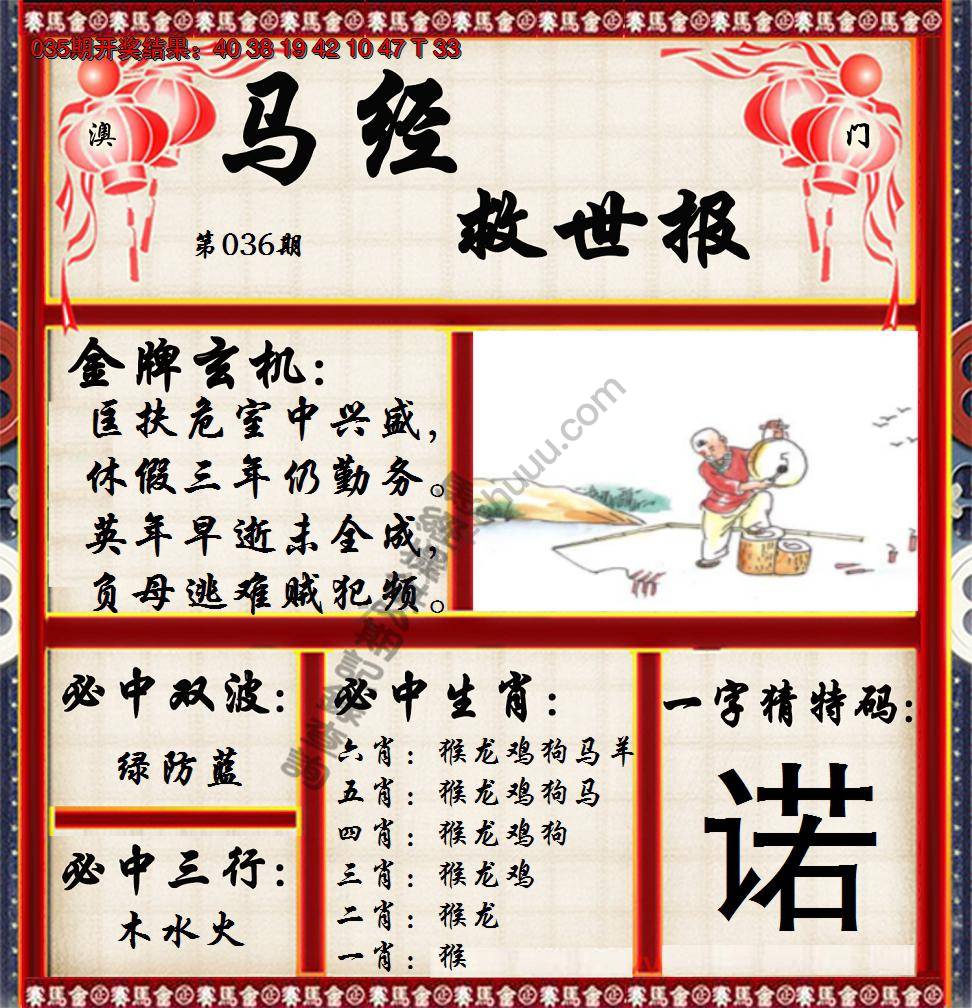 賽馬會
035期开奖结果：40 38 19 42 10 47 T 33
澳
门
马经
救世报
第036期
金牌玄机：
匡扶危室中兴盛，
休假三年仍勤务。
英年早逝未全成，
负母逃难贼犯频。
5
必中双波：
绿防蓝
必中三行：
木水火
必中生肖：
六肖：猴龙鸡狗马羊
五肖：猴龙鸡狗马
四肖：猴龙鸡狗
三肖：猴龙鸡
二肖：猴龙
一肖：猴
一字猜特码：
诺